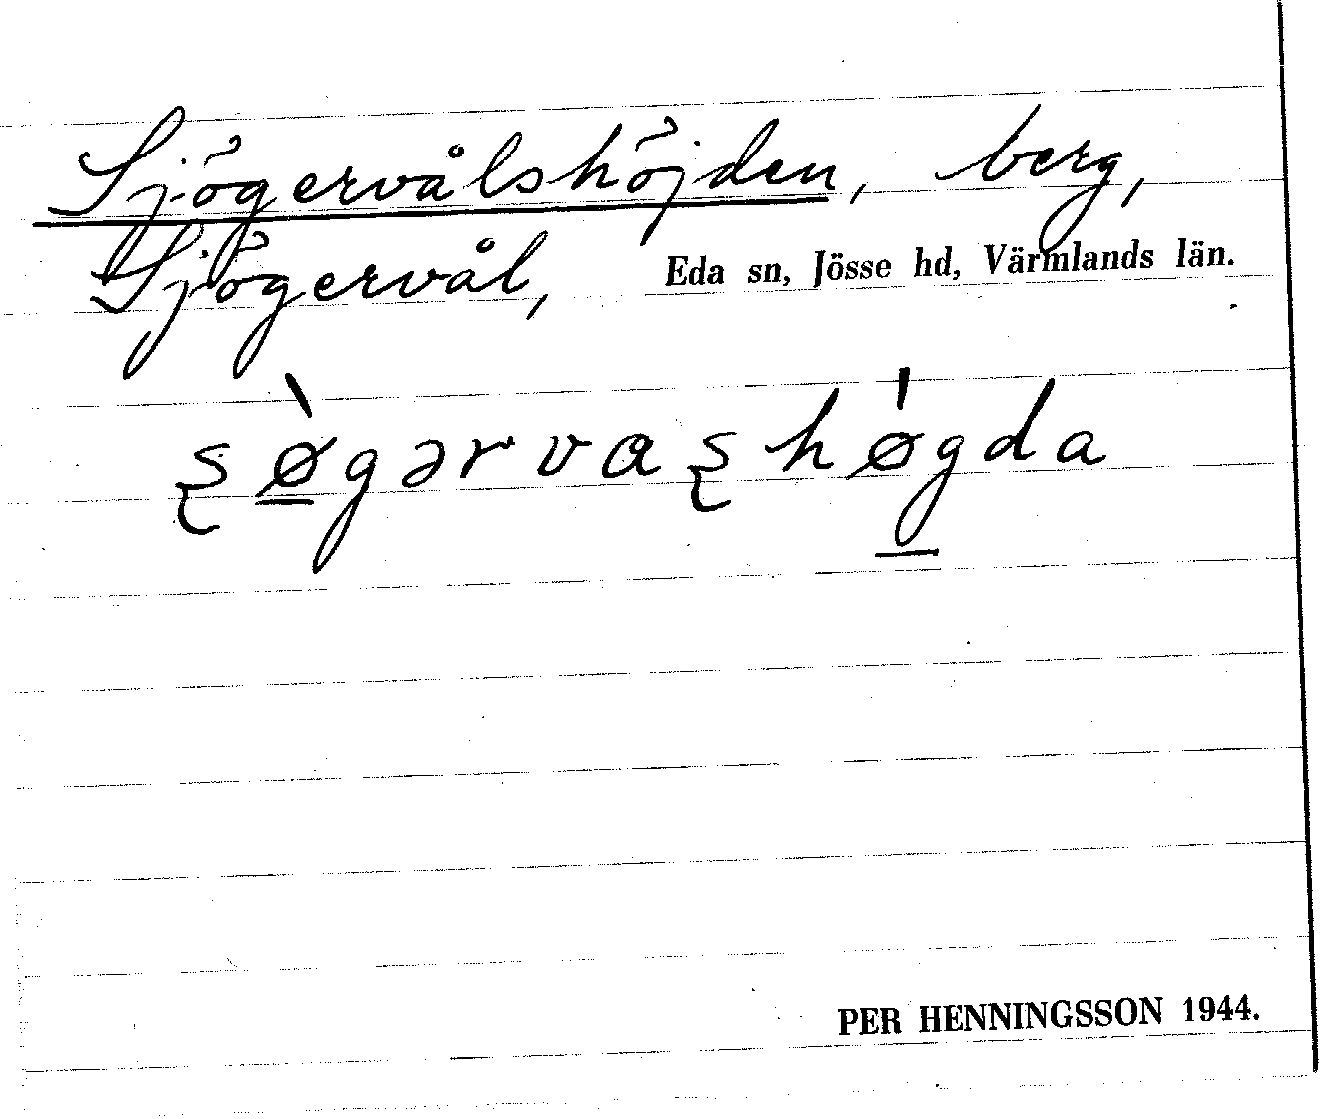 Sjögervålshöjden, berg,
Sjögervål, Eda sn, Jösse hd, Värmlands län.
ʂø̠̀gərvaʂhø̍g̠da
PER HENNINGSSON 1944.